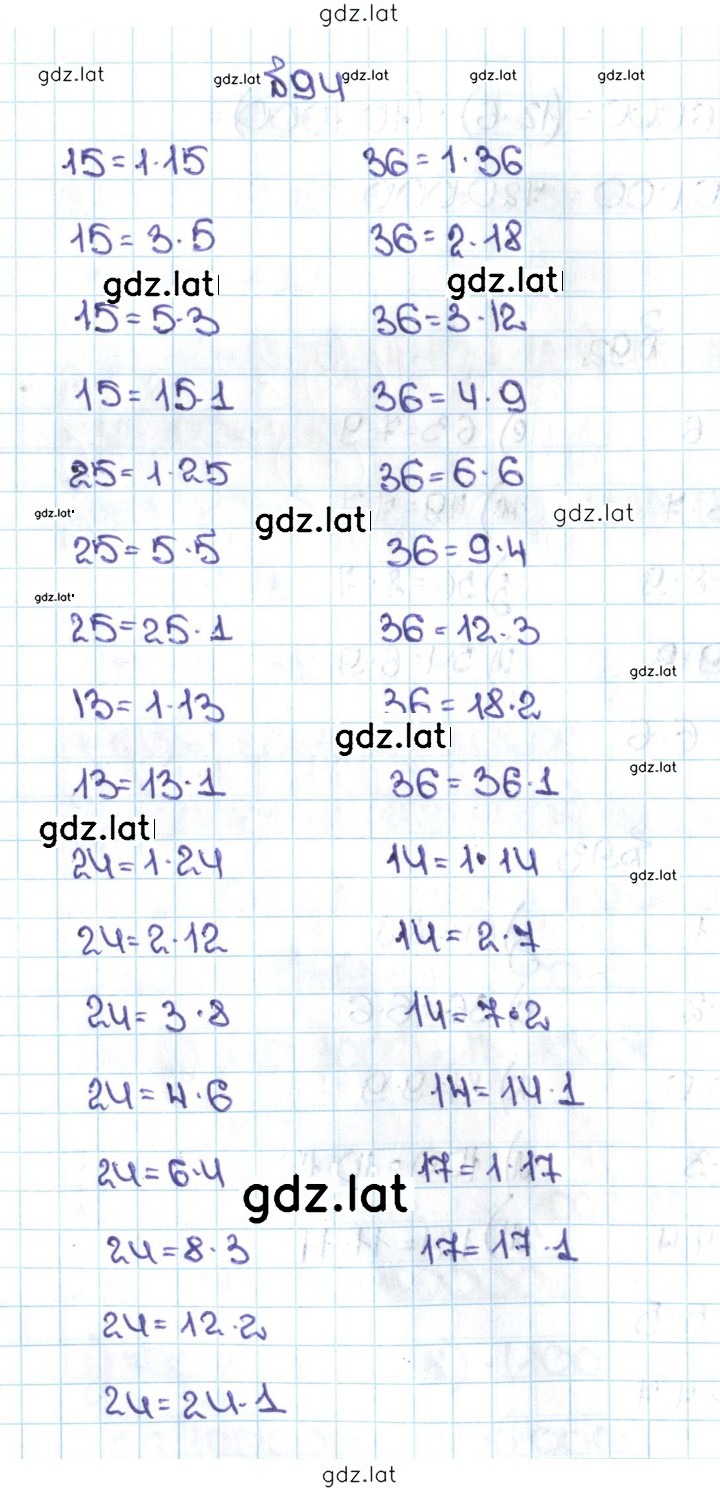 gdz.lat
gdz.lat gdz.lat №94 gdz.lat gdz.lat gdz.lat
15=1·15
15=3·5
gdz.lat
15=5·3
15=15·1
25=1·25
gdz.lat
gdz.lat
25=5·5
gdz.lat
25=25·1
13=1·13
13=13·1
gdz.lat
24=1·24
24=2·12
24=3·8
24=4·6
24=6·4
gdz.lat
24=8·3
24=12·2
24=24·1
36=1·36
36=2·18
gdz.lat
36=3·12
36=4·9
36=6·6
gdz.lat
36=9·4
36=12·3
gdz.lat
36=18·2
gdz.lat
gdz.lat
36=36·1
14=1·14
gdz.lat
14=2·7
14=7·2
14=14·1
17=1·17
17=17·1
gdz.lat